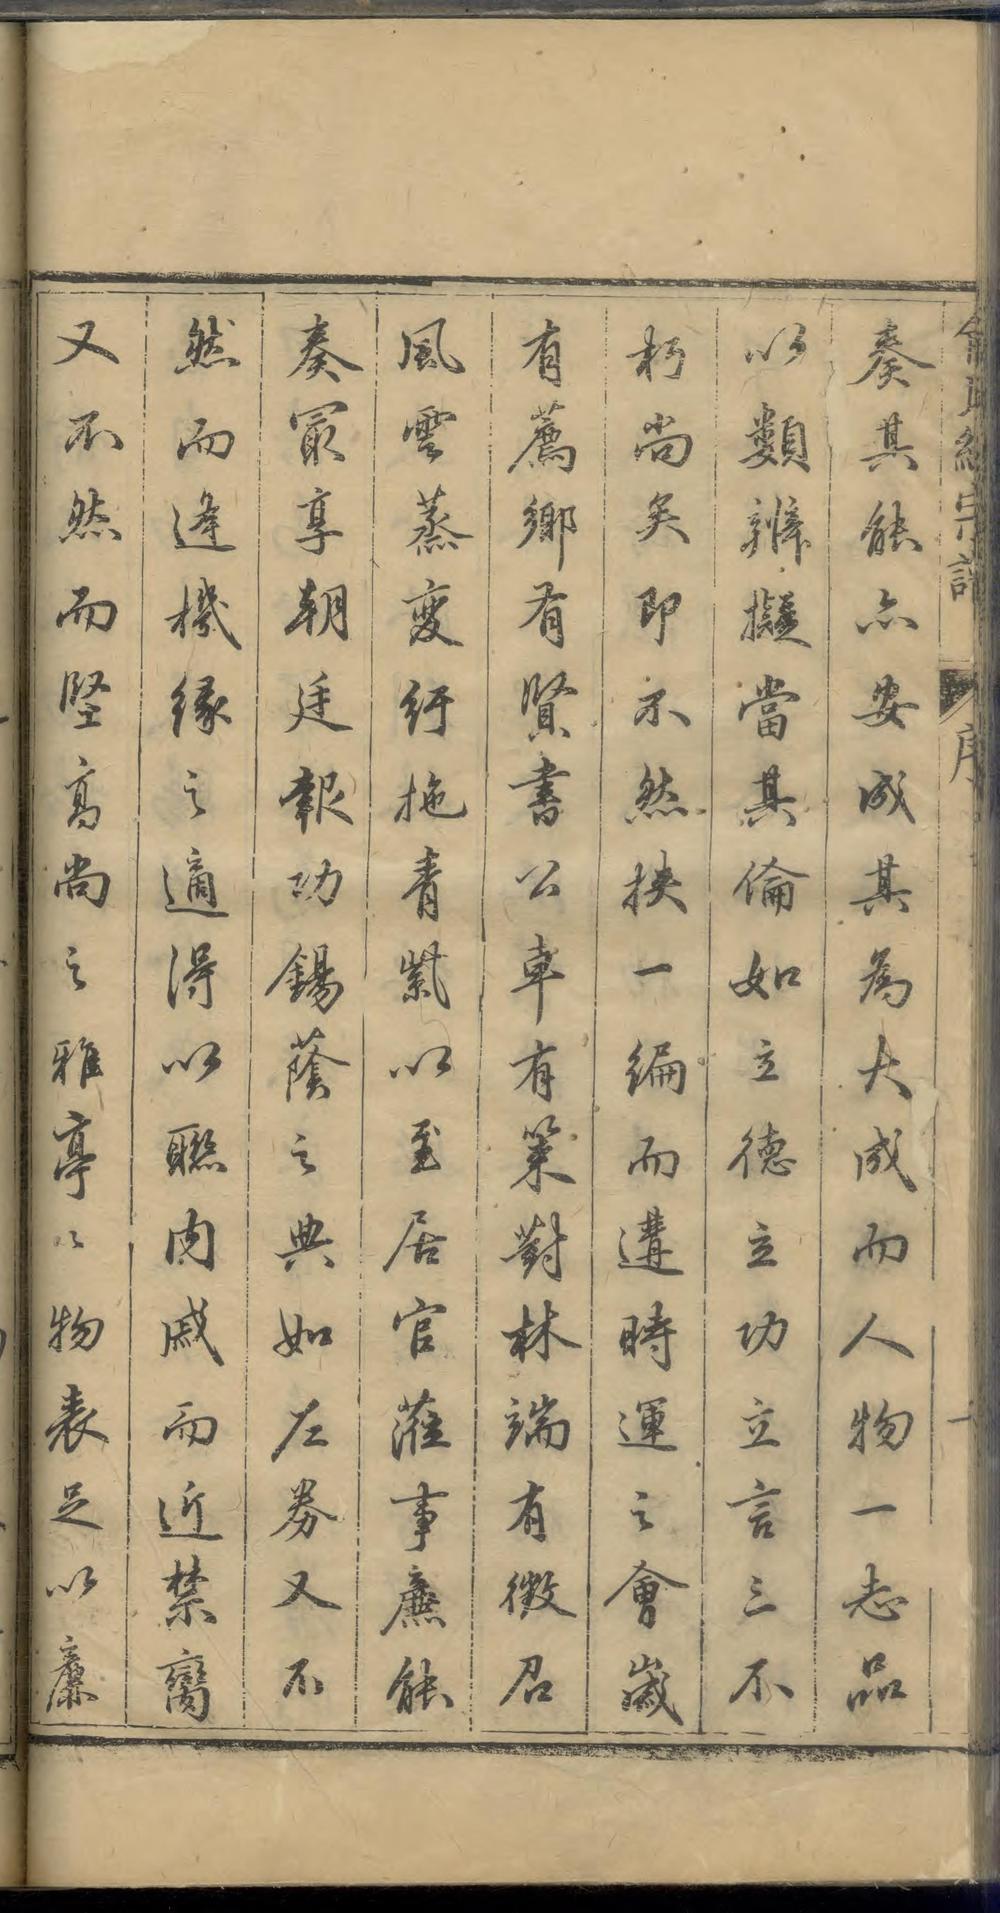 奏其能亦安成其為大成而人物一志品
以類辨擬當其倫如立德立功立言三不
朽尚矣即不然挾一編而遘時運之會歲
有薦鄉有賢書公車有策對林端有徵召
風雲蒸變紆拖青紫以至居官蒞事廉能
奏最享朝廷報功錫蔭之典如左券又不
然而逢機緣之適得以聯肉戚而近禁臠
又不然而堅高尚之雅亭〻物表足以廉
序